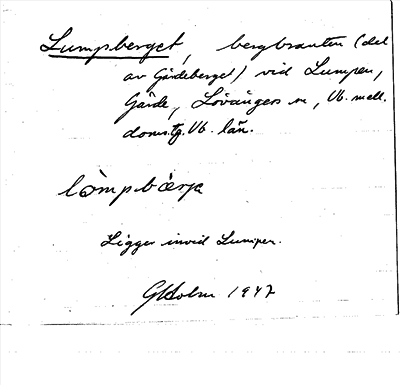 Lumpberget, bergbranten (del
av Gärdeberget) vid Lumpen,
Gärde, Lövångers sn, Vb. mell.
doms.tg. Vb. län.
lòmpbærja
Ligger invid Lumpen.
GHolm 1947